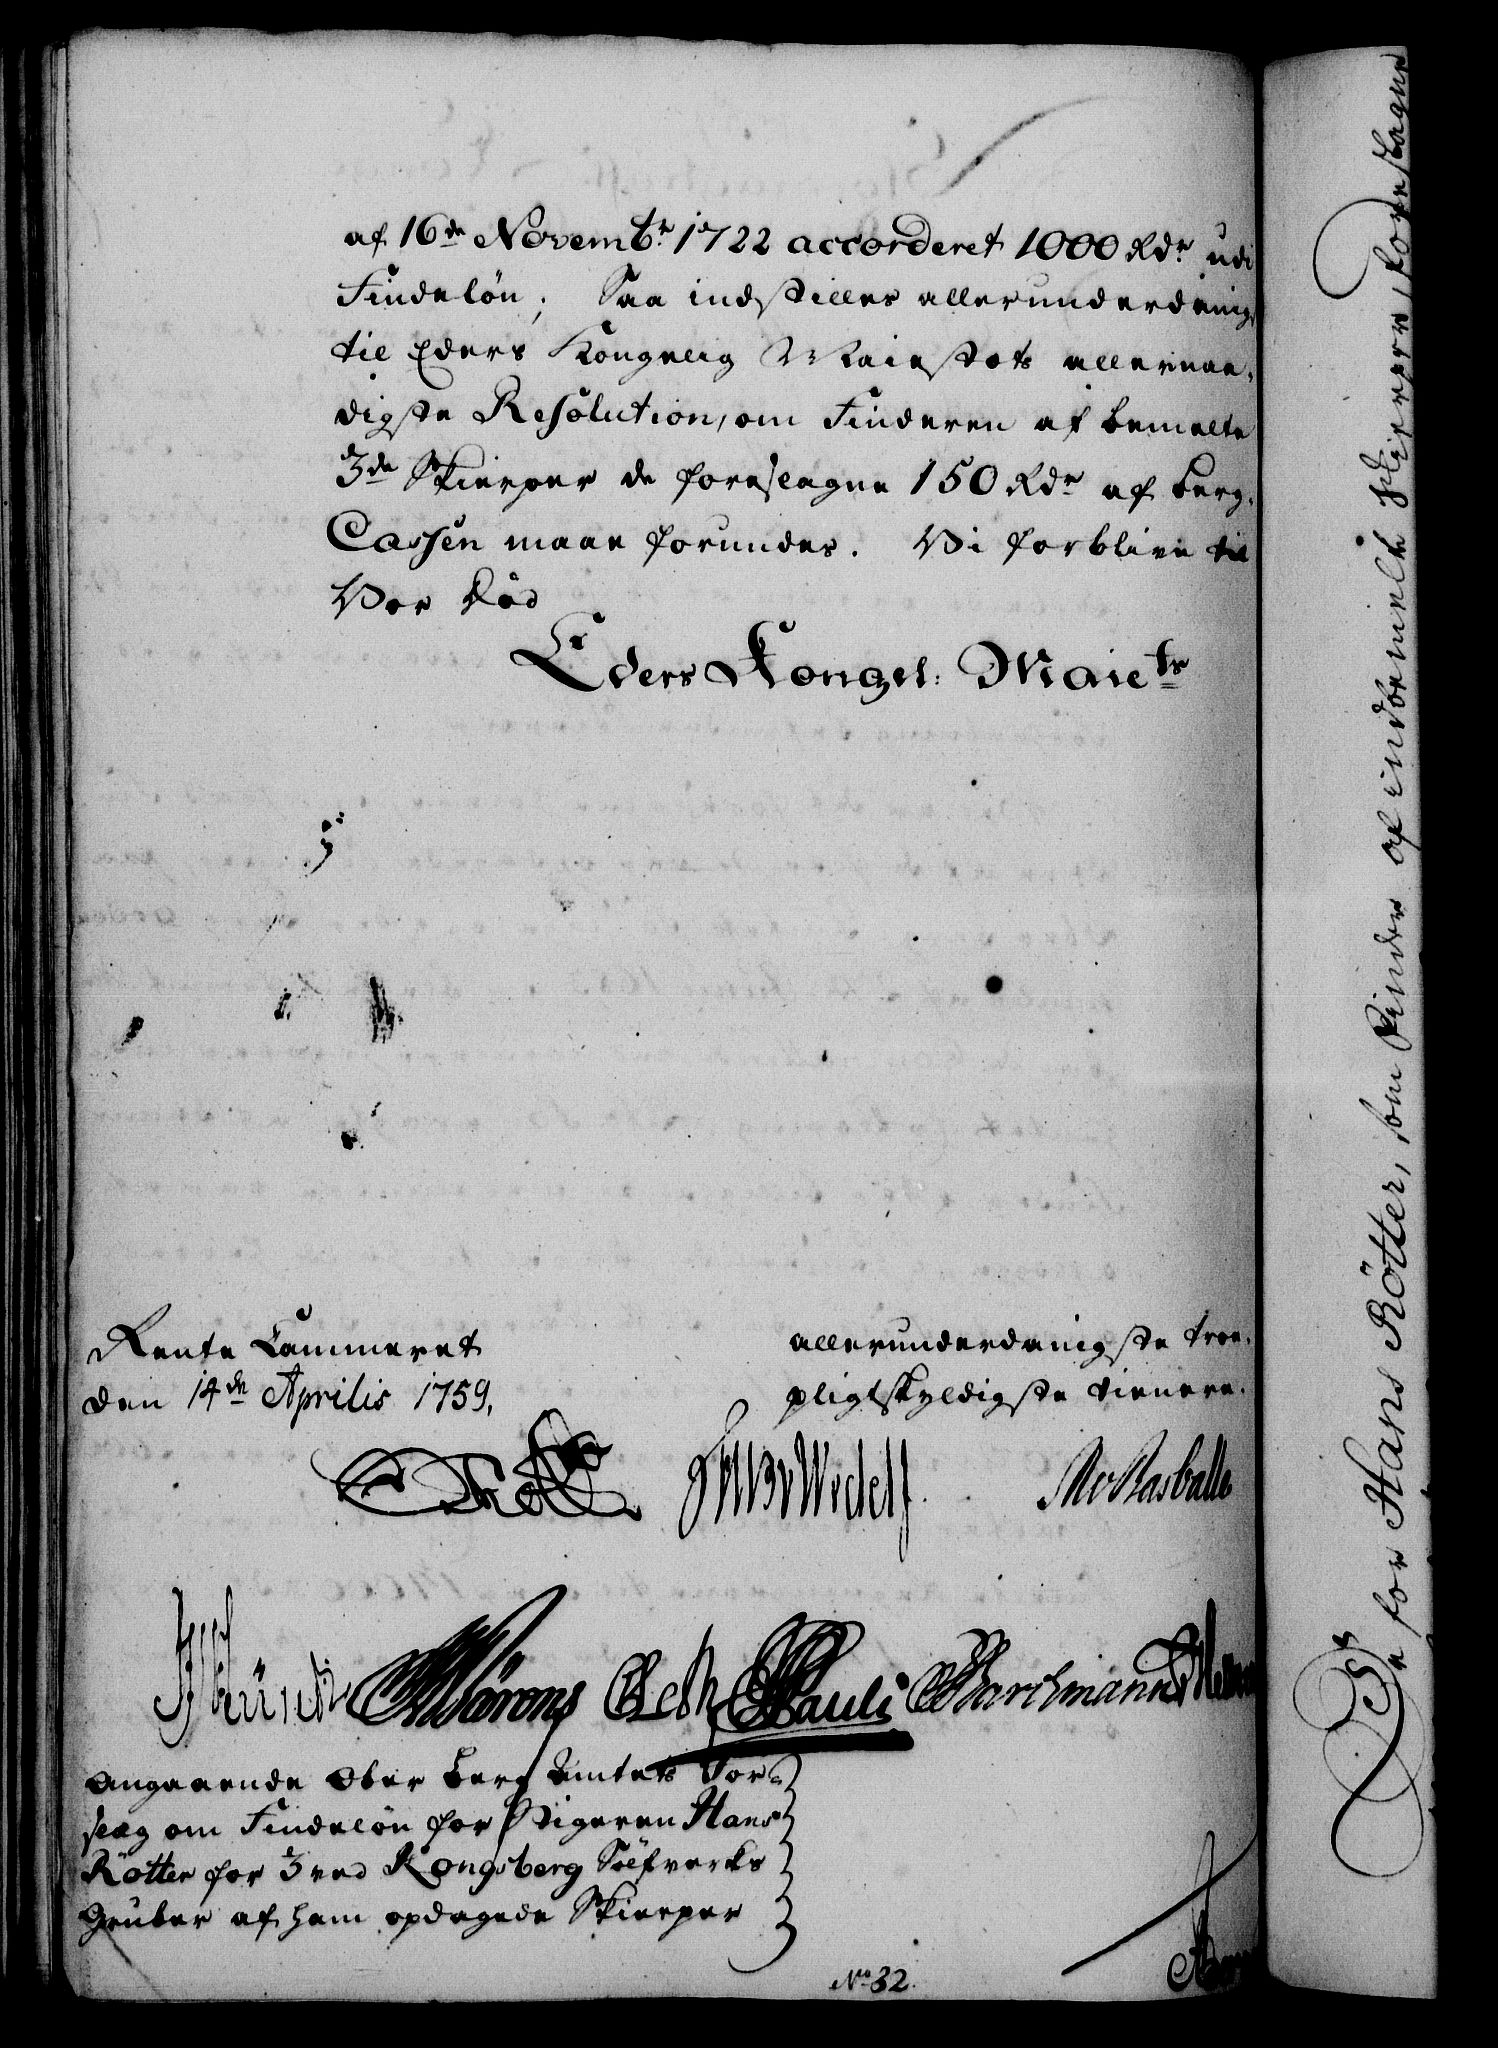 af 16de Novembr 1722 accorderet 1000 Rdr udi
Findeløn; Saa indstilles allerunderdanigst
til Eders Kongelig Maiestets allernaa-
digste Resolution, om Finderen af bemelte
3de Skierper de foreslagne 150 Rdr af Berg-
Cassen maae forundes. Vi forblive til
Vor Død
Eders Kongel: Maiets
Rente Cammeret
den 14de Aprilis 1759.
allerunderdanigste troe-
pligtskyldigste tienere.
Angaaende Ober Berg Amtets For-
slag om Findeløn for Stigeren Hans
Rötter for 3 ved Kongsberg Sølfverks
Gruber af ham opdagede Skierper
No 32.
for Hans Rötter, som Finder af indbemelte Skierper, foreslagne